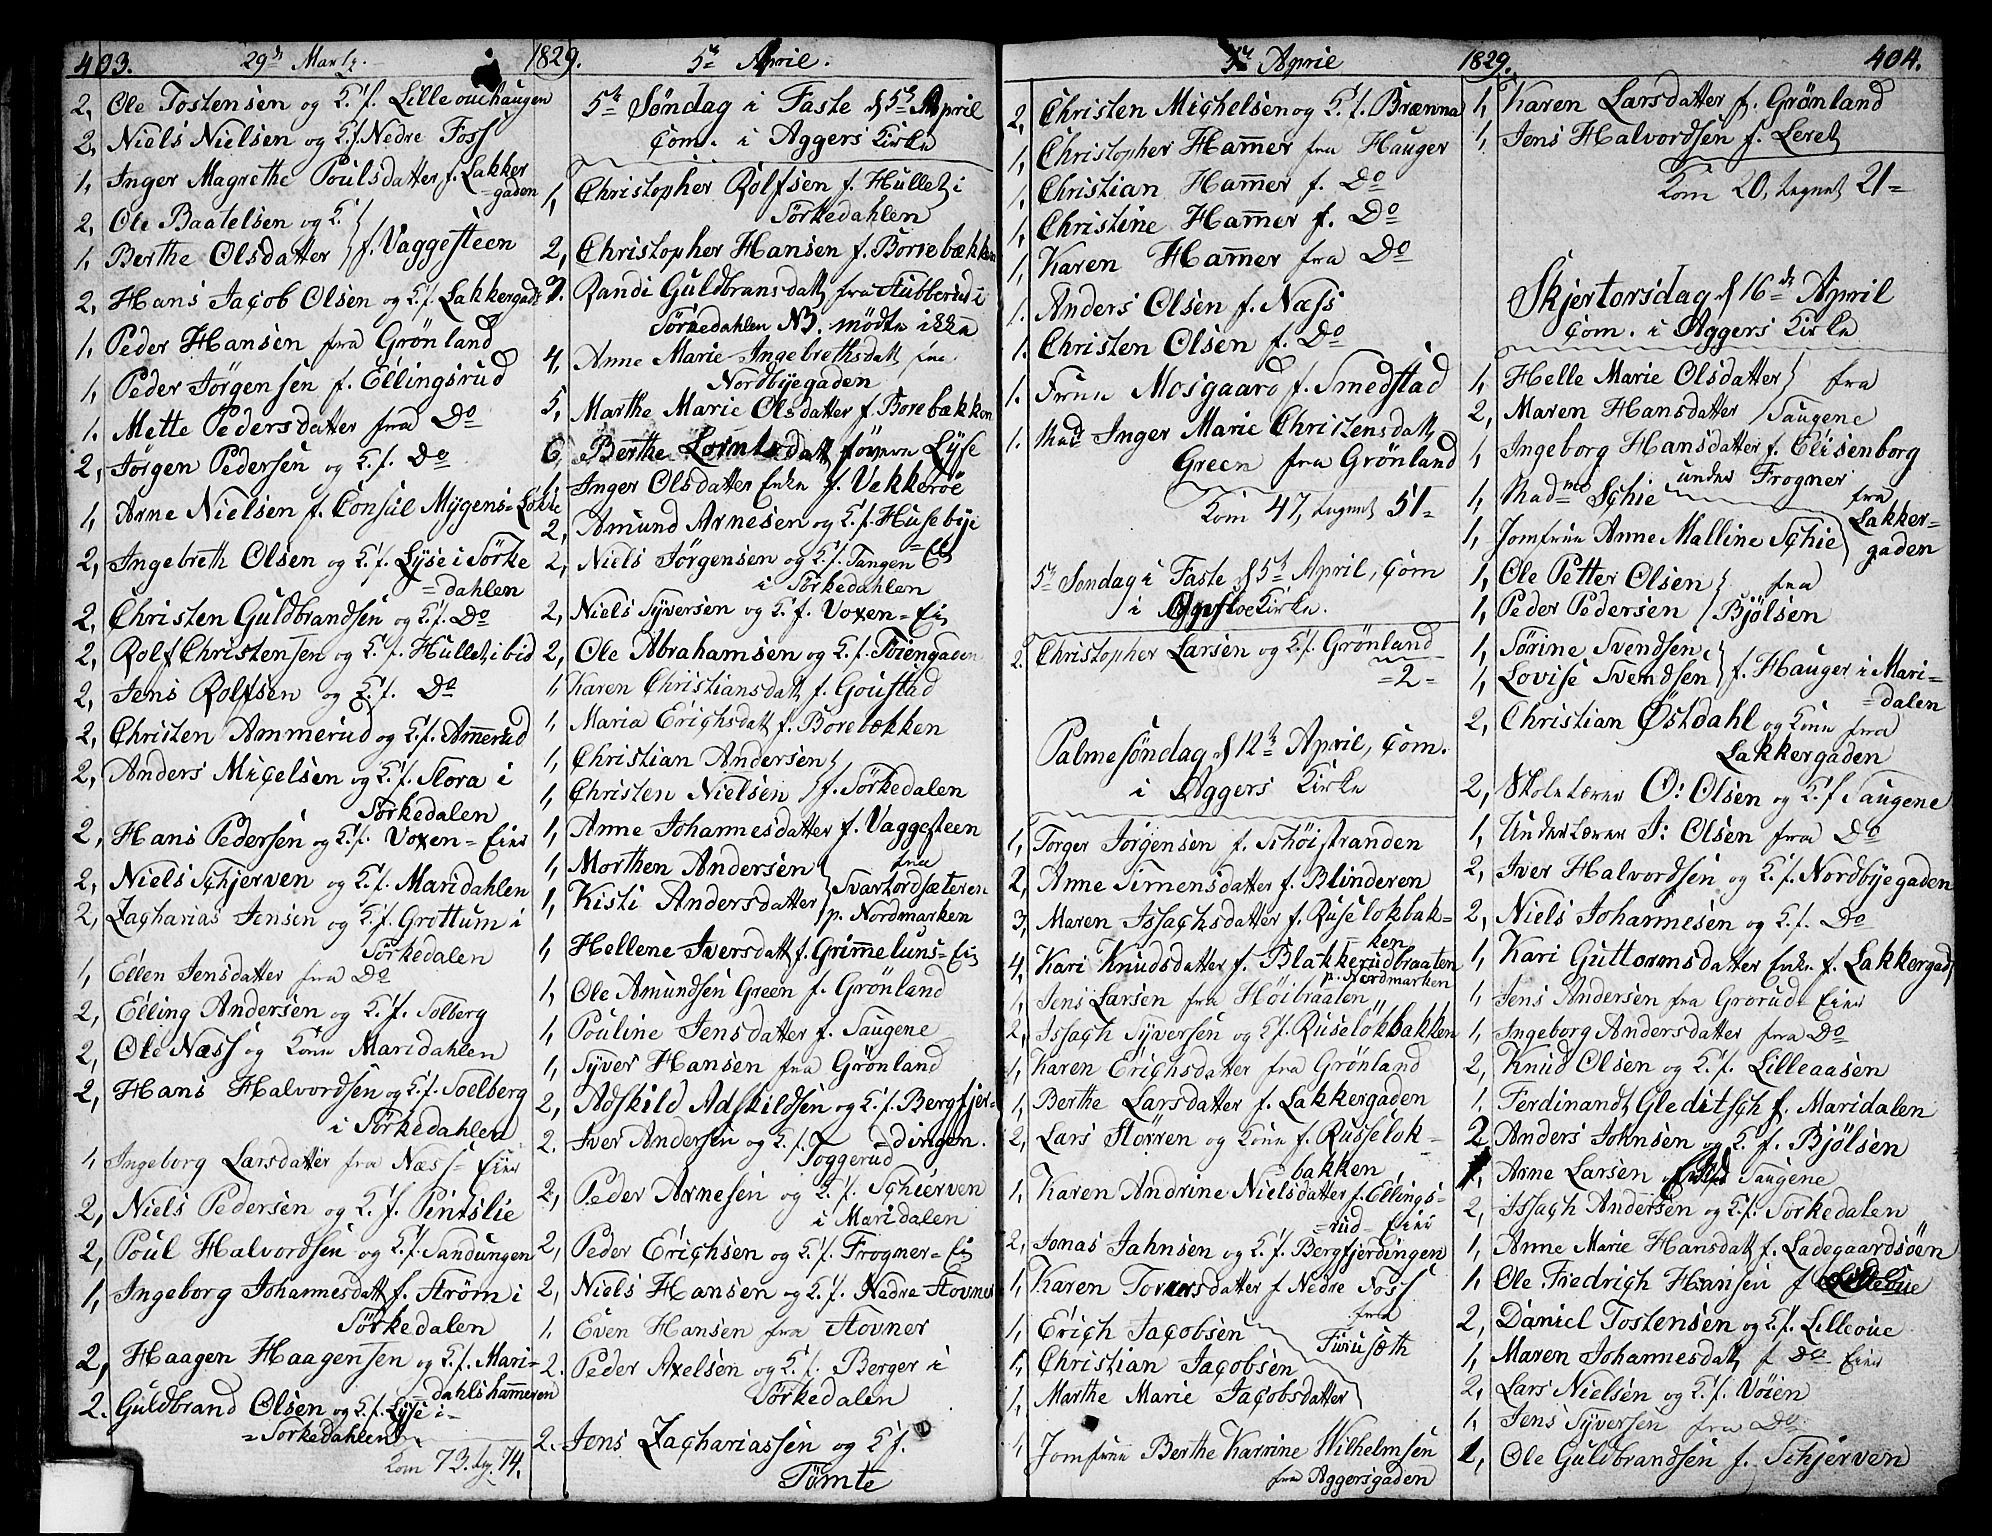 403.
29de Martz.
1829.
2, Ole Tostensen og K. f. Lilleouehaugen
2, Niels Nielsen og K. f. Nedre Foss
1, Inger Magrethe Poulsdatter f. Lakker
=gaden
2, Ole Baatelsen og K.
1, Berthe Olsdatter } f. Vaggesteen
2, Hans Jacob Olsen og K. f. Lakkergade
1, Peder Hansen fra Grönland
1, Peder Jörgensen f. Ellingsrud
1. Mette Pedersdatter fra Do
2, Jörgen Pedersen og K. f. Do
1, Arne Nielsen f. Consul Mygens=Lökke
2, Ingebreth Olsen og K. f. Lyse i Sörke
=dahlen
2, Christen Guldbrandsen og K. f. Do
2, Rolf Christensen og K. f. Hullet ibid
2, Jens Rolfsen og K. f. Do
2, Christen Ammerud og K. f. Am̅erud
2, Anders Micelsen og K. f. Stora i
Sörkedalen
2, Hans Pedersen og K. f. Voxen=Eier
2, Niels Schjerven og K. f. Maridahlen
2, Zacharias Jensen og K. f. Grottum i
Sörkedalen
1, Ellen Jensdatter fra Do
2, Elling Andersen og K. f. Solberg
2, Ole Næss og Kone Maridahlen
2, Hans Halvordsen og K. f. Soelberg
i Sörkedahlen
1, Ingeborg Larsdatter fra Næss=Eier
2, Niels Pedersen og K. f. Pintslie
2, Poul Halvordsen og K. f. Sandungen
1, Ingeborg Johannesdatt f. Ström i
Sörkedalen
2, Haagen Haagensen og K. f. Mari=
=dahlsham̅eren
2. Guldbrand Olsen og K. f. Lyse i=
=Sörkedahlen
Kom 73. tg. 74,
5te April.
5te Söndag i Faste d 5te April
Com. i Aggers Kirke
1, Christopher Rolfsen f. Hullet i
Sörkedahlen
2, Christopher Hansen f. Borrebækken
Randi Guldbransdatt fra Stubberud i
Sörkedahlen NB. mödte ikke
4, Anne Marie Ingebrethsdatt fra
Nordbyegaden
5, Marthe Marie Olsdatter f. Borebækken
6, Berthe Lorntsdatt Lyse
1, Inger Olsdatter Enke f. Vækkeröe
2, Amund Arnesen og K. f. Husebye
2, Niels Jörgensen og K. f. Tangen
i Sörkedahlen
2, Niels Syversen og K. f. Voxen=Ei
2, Ole Abrahamsen og K. f. Töiengaden
1, Karen Christiansdatt f. Goustad
1, Maria Erichsdatt f. Borebækken
1, Christian Andersen
1, Christen Nielsen } f. Sörkedalen
1, Anne Johannesdatter f. Vaggesteen
1, Morthen Andersen fra
1, Kisti Andersdatter } Svartordsæteren
p. Nordmarken
1, Hellene Iversdatt f. Grim̅eluns=Ei
1, Ole Amundsen Green f. Grönland
1, Pouline Jensdatter f. Saugene
1, Syver Hansen fra Grönland
2, Adskild Adskildsen og K. f. Bergfjer=
=dingen.
2. Iver Andersen og K. f. Toggerud
2, Peder Arnesen og K. f. Schierven
i Maridalen
2, Peder Erichsen og K. f. Frogner=Ei
2, Niels Hansen og K. f. Nedre Stovner
1, Even Hansen fra Stovner
2. Peder Axelsen og K. f. Berger i
Sörkedalen
2. Jens Zachariassen og K f.
Tömte
5te April
1829.
404.
2, Christen Michelsen og K. f. Brænna
1, Christopher Ham̅er fra Hauger
1, Christian Ham̅er f. Do
1, Christine Ham̅er f. Do
1, Karen Ham̅er fra Do
1. Anders Olsen f. Næss
1. Christen Olsen f. Do
1. Frue Mosgaard f. Smedstad
1. Mad Inger Marie Christensdatt
Green fra Grönland
Kom 47, tegnet 51=
5te Söndag i Faste d 5te April, Com
i Kirke.
2. Christopher Larsen og K. f. Grönland
=2=
Palmesöndag d 12te April, Com.
i Aggers Kirke
1, Torger Jörgensen f. Schöistranden
2, Anne Simensdatter f. Blinderen
3, Maren Issachsdatter f. Ruselokbak=
=ken
4, Kari Knudsdatter f. Blakkerudbraaten
p. Nordmarken
1, Jens Larsen fra Höibraaten
2, Issach Syversen og K. f. Ruselökbakken
1, Karen Erichsdatter fra Grönland
1, Berthe Larsdatter f. Lakkergaden
2, Lars Störren og Kone f. Russelok=
bakken
1, Karen Andrine Nielsdatter f. Ellings=
=rud=Eier
2, Jonas Jahnsen og K. f. Bergfjerdingen
1, Karen Toversdatter f Nedre Foss
1, Erich Jacobsen fra
1, Christian Jacobsen Furuseth
1, Marthe Marie Jacobsdatter
1, Jomfrue Berthe Karrine Wilhelmsen
fra Aggersgaden
1, Karen Larsdatter f. Grönland
1, Jens Halvordsen f. Leret
Kom 20, tegnet 21=
Skjertorsdag d 16de April
Com. i Aggers Kirke
1, Helle Marie Olsdatter } fra
2, Maren Hansdatter Saugene
1, Ingeborg Hansdatter f. Elisenborg
under Frogner
1, Madme Schie fra
1, Jomfrue Anne Malline Schie Lakker=
gaden
1, Ole Petter Olsen } fra
1, Peder Pedersen Bjölsen
1, Sörine Svendsen
1, Lovise Svendsen } f. Hauger i Mari=
=dalen
2, Christian Östdahl og Kone fra
Lakkergaden
2, Skolelærer O: Olsen og K. f Saugene
1, Underlærer J: Olsen fra Do
2, Iver Halvordsen og K. f. Nordbyegaden
2, Niels Johannesen og K. f. Do
1, Kari Guttormsdatter Enke f. Lakkergad
1, Jens Andersen fra Grorud=Eier
1, Ingeborg Andersdatter fra Do
2, Knud Olsen og K. f. Lilleaasen
1, Ferdinandt Gleditsch f. Maridalen
2, Anders Johnsen og K. f. Bjölsen
1, Arne Larsen Saugene
2, Issach Andersen og K. f. Sörkedalen
1, Anne Marie Hansdatt f. Ladegaardsöen
1, Ole Fredrich Hansen f
2, Daniel Tostensen og K. f. Lilleoue
1, Maren Johannesdatt f Do Eier
2, Lars Nielsen og K. f. Vöien
1, Jens Syversen fra Do
1, Ole Guldbrandsen f. Schjerven